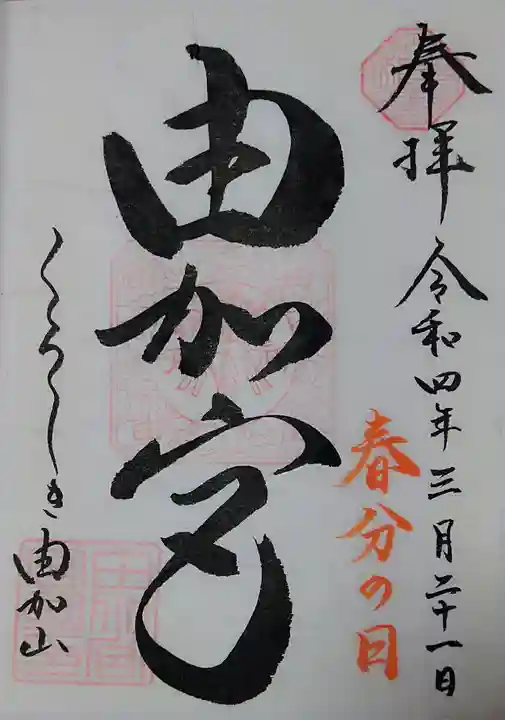 奉拝 令和四年三月二十一日
春分の日
由加宮
くらしき 由加山